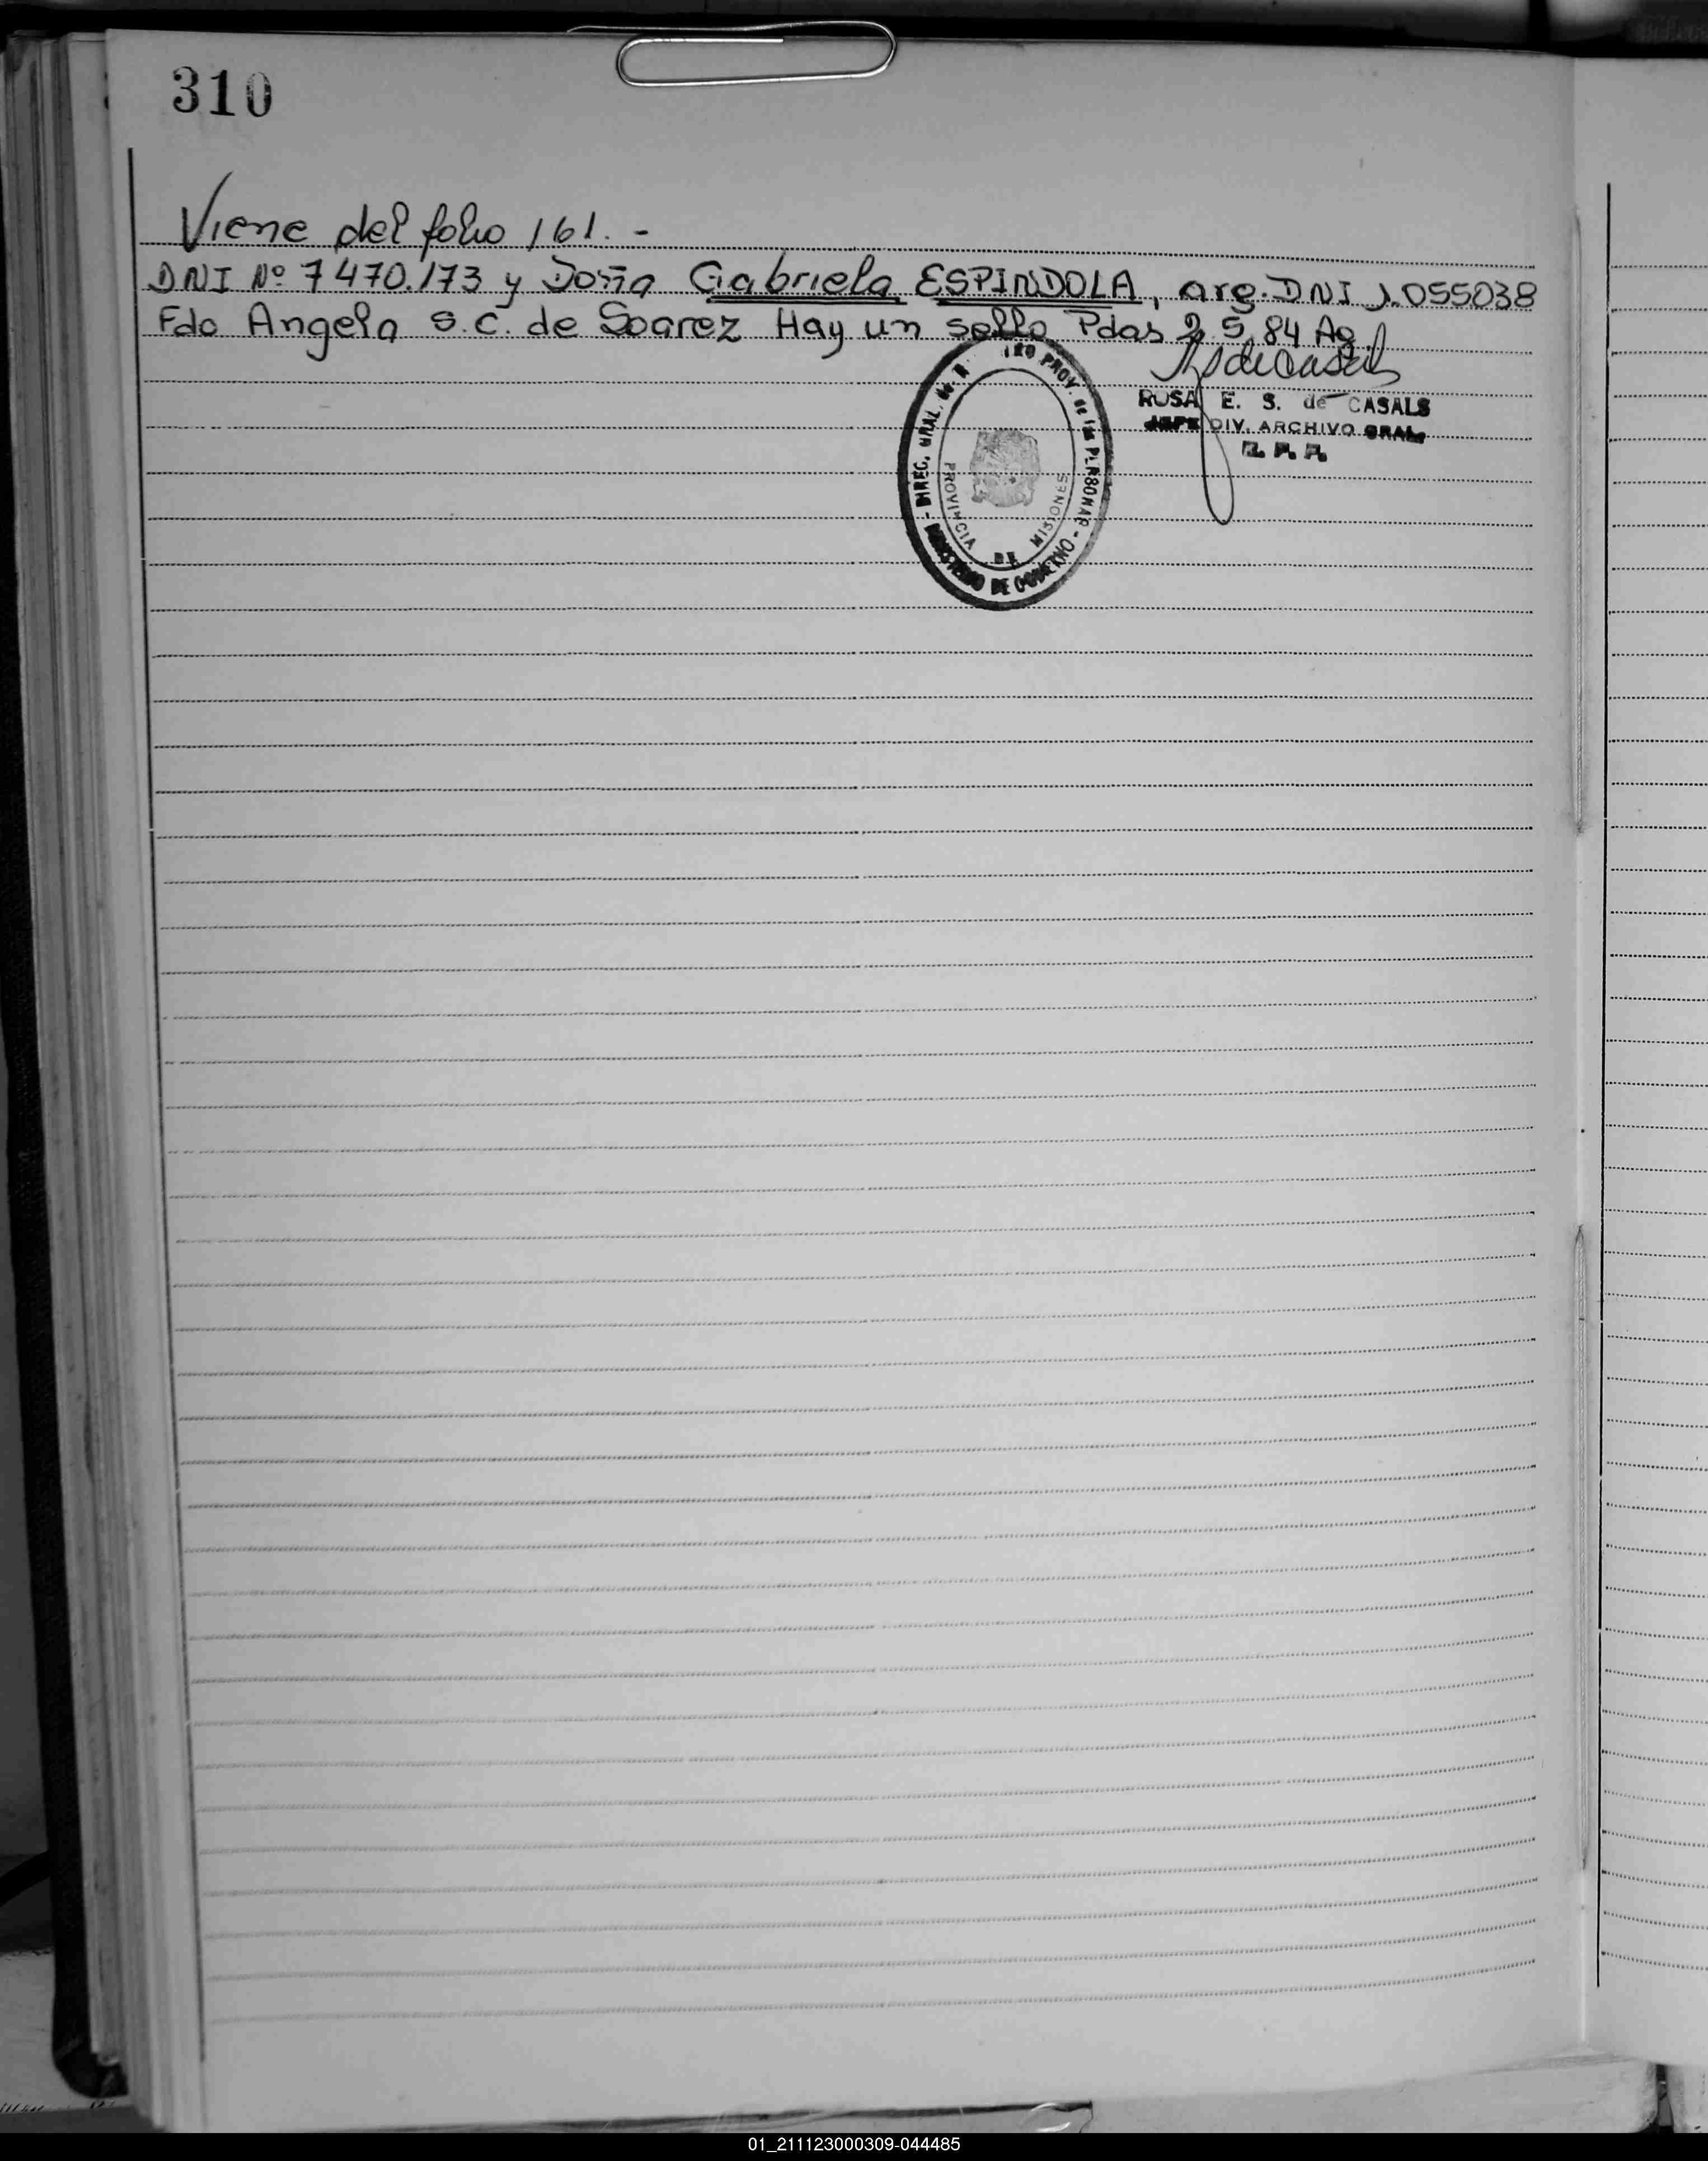 310
Viene del folio 161. -
DNI Nº 7470.173 y Doña Gabriela ESPINDOLA, arg. DNI 1.055038
Fdo Angela S.C. de Soarez Hay un sello Pdas 2 5 84 Ag.
ROSA E. S. de CASALS
JEFE DIV. ARCHIVO GRAL.
R. P. P.
PROV. de las PERSONAS - MINISTERIO DE GOBIERNO - DIREC. GRAL.
PROVINCIA DE MISIONES
01_211123000309-044485